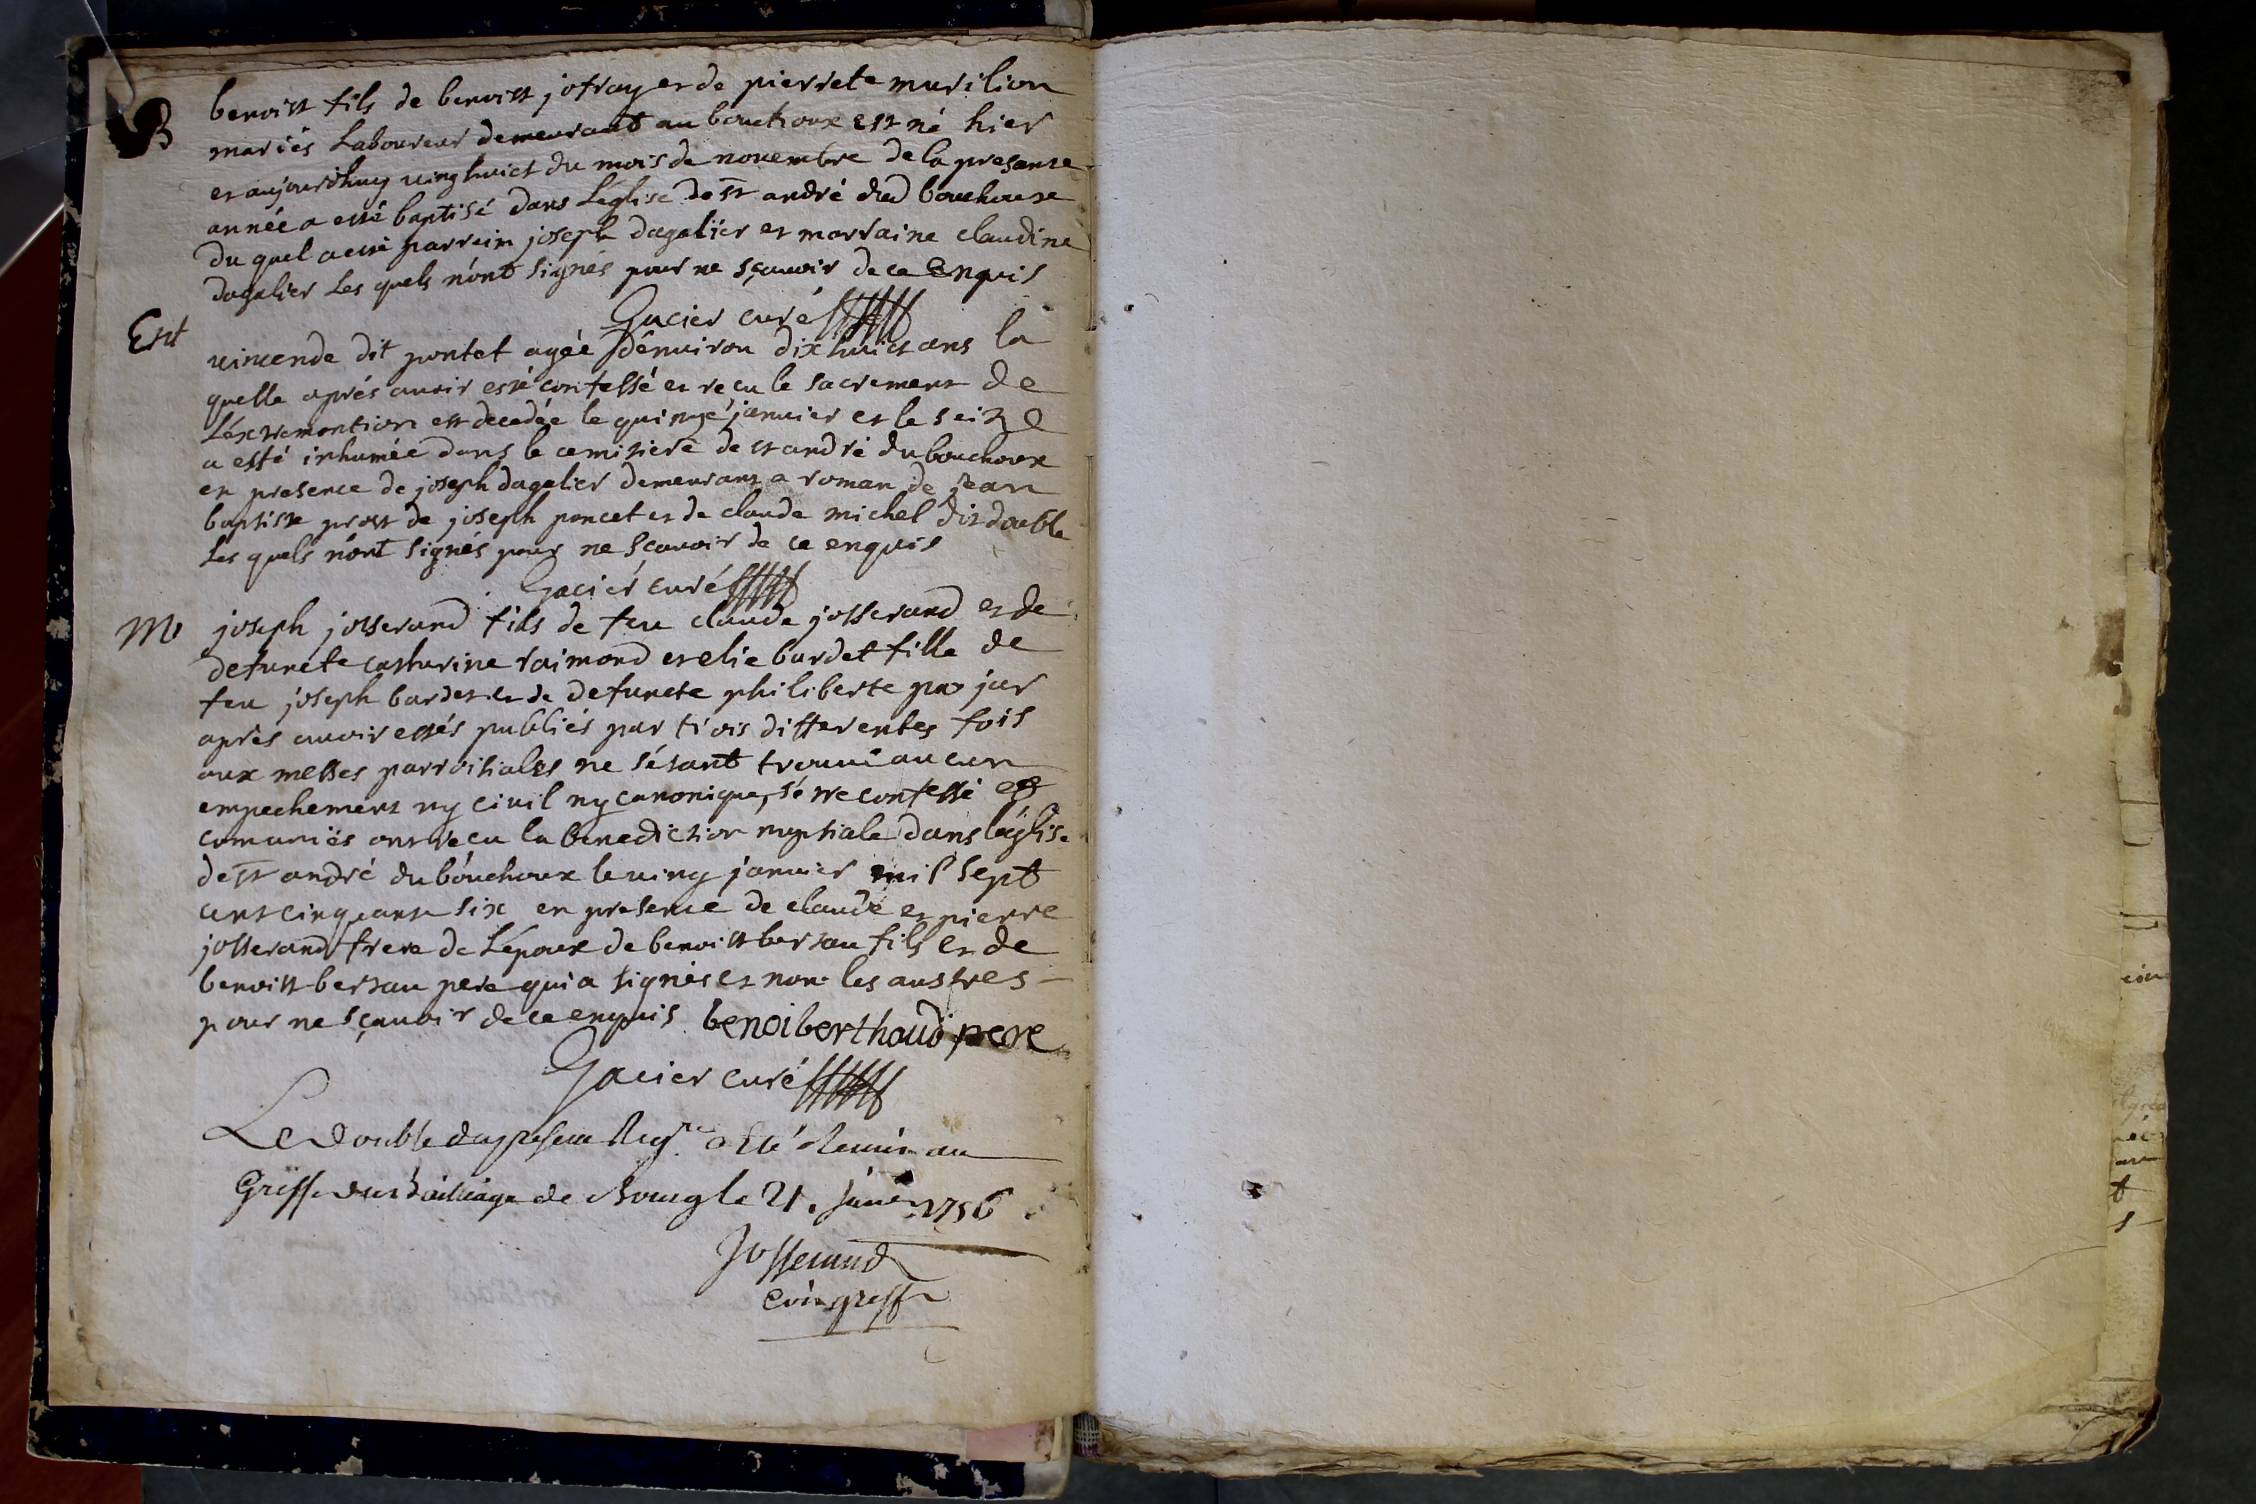 B
benoist fils de benoist jofray et de pierrete murilion
mariés Laboureur demeurant au bouchoux est né hier
et aujourdhuy vinghuict du mois de novembre de la presante
année a esté baptisé dans L'eglise de st andré dud bouchoux
du quel a esté parrein joseph dagalier et marraine claudine
dagalier Les quels n'ont signés pour ne sçauoir de ce Enquis
Gacier curé
Ent
vincende dit pontet agée d'enuiron dix huict ans la
quelle aprés auoir esté confessé et recu le sacrement de
L'éxtremontion est decedée le quinze janvier et le seize
a esté inhumée dans le cemitiere de st andré du bouchoux
en presence de joseph dagalier demeurant a roman de jean
baptiste prost de joseph poncet et de claude michel dit double
Les quels n'ont signés pour ne sçauoir de ce enquis
Gacier curé
M
joseph josserand fils de feu claude josserand et de
defuncte catharine raimond et elie bardet fille de
feu joseph bardet et de defuncte philiberte pojar
aprés auoir estés publiés par trois differentes fois
aux messes parroisiales ne s'étant trouué aucun
empechement ny ciuil ny canonique, s'étre confessé et
comuniés ont recu la benediction nuptiale dans l'église
de st andré du bouchoux le ving janvier mil sept
cent cinquante six en presence de claude et pierre
josserand frere de L'époux de benoist bertau fils et de
benoist bertau pere qui a signés et non les austres
pour ne sçauoir de ce enquis benoi berthaud pere
Gacier curé
Le Double du present Reg.re a Eté Remis au
Greffe du bailliage de Bourg le 21. janv.er 1756
Josserand
Com greff